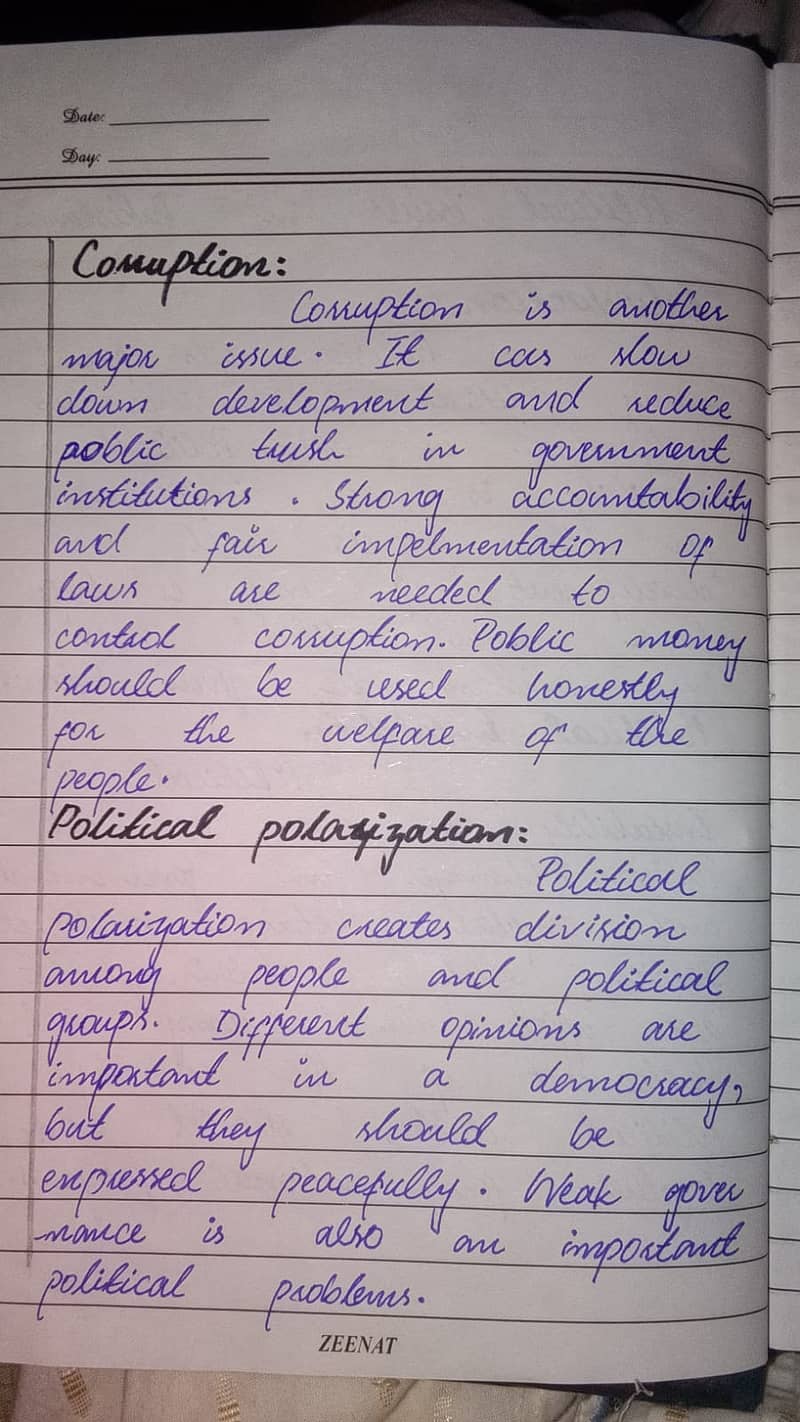 Date:
Day:
Corruption:
Corruption is another
major issue. It can slow
down development and reduce
poblic trush in government
institutions. Strong accountability
and fair impelmentation of
laws are needed to
control corruption. Poblic money
should be used honestly
for the welfare of the
people.
Political polarization:
Political
polarization creates division
among people and political
groups. Different opinions are
important in a democracy,
but they should be
expressed peacefully. Weak gover
-nance is also an important
political problems.
ZEENAT